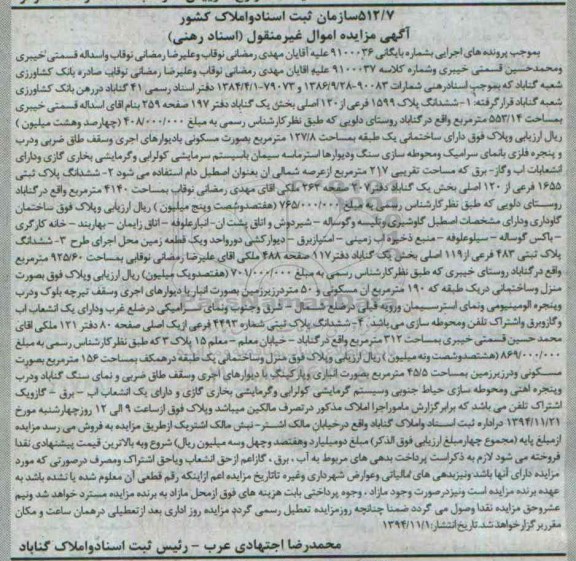 ۵۱۲/۷سازمان ثبت اسنادواملاک کشور
آگهی مزایده اموال غیرمنقول (اسناد رهنی)
بموجب پرونده های اجرایی بشماره بایگانی ۹۱۰۰۰۳۶ علیه آقایان مهدی رمضانی نوقاب وعلیرضا رمضانی نوقاب واسداله قسمتی خیبری
ومحمدحسین قسمتی خیبری وشماره کلاسه ۹۱۰۰۰۳۷ علیه اقایان مهدی رمضانی نوقاب وعلیرضا رمضانی نوقاب صادره بانک کشاورزی
شعبه گناباد که بموجب اسنادرهنی شمارات ۹۰۰۸۳-۱۳۸۶/۹/۲۸ و ۷۹۰۷۳-۱۳۸۴/۴/۱ دفتر اسناد رسمی ۴۱ گناباد دررهن بانک کشاورزی
شعبه گناباد قرارگرفته: ۱-ششدانگ پلاک ۱۵۹۹ فرعی از ۱۲۰ اصلی بخش یک گناباد دفتر ۱۹۷ صفحه ۲۵۹ بنام اقای اسداله قسمتی خیبری
بمساحت ۵۵۳/۱۴ مترمربع واقع در گناباد روستای دلویی که طبق نظرکارشناس رسمی به مبلغ ۴۰۸/۰۰۰/۰۰۰ (چهارصد وهشت میلیون )
ریال ارزیابی وپلاک فوق دارای ساختمانی یک طبقه بمساحت ۱۳۷/۸ مترمربع بصورت مسکونی بادیوارهای اجری وسقف طاق ضربی ودرب
و پنجره فلزی بانمای سرامیک ومحوطه سازی سنگ ودیوارها استرماسه سیمان باسیستم سرمایشی کولرابی وگرمایشی بخاری گازی ودارای
انشعابات اب وگاز- برق که مساحت تقریبی ۲۱۷ مترمربع ازعرصه شمالی ان بعنوان اصطبل دام استفاده می شود ۲- ششدانگ پلاک ثبتی
۱۶۵۵ فرعی از ۱۲۰ اصلی بخش یک گناباد دفتر۲۰۷ صفحه ۲۶۳ ملکی اقای مهدی رمضانی نوقاب بمساحت ۴۱۴۰ مترمربع واقع درگناباد
روستای دلویی که طبق نظرکارشناس رسمی به مبلغ ۷۶۵/۰۰۰/۰۰۰ (هفتصدوشصت وپنج میلیون ) ریال ارزیابی وپلاک فوق ساختمان
گاوداری ودارای مشخصات اصطبل گاوشیری وتلیسه وگوساله – شیردوش و اتاق پشت ان- انبارعلوفه – اتاق زایمان – بهاربند – خانه کارگری
– باکس گوساله – سیلوعلوفه – منبع ذخیره اب زمینی – امتیازبرق – دیوارکشی دورواحد ویک قطعه زمین محل اجرای طرح ۳- ششدانگ
پلاک ثبتی ۴۸۳ فرعی از۱۱۹ اصلی بخش یک گناباد دفتر ۱۱۷ صفحه ۴۸۸ ملکی اقای علیرضا رمضانی نوقابی بمساحت ۹۲۵/۶۰ مترمربع
واقع درگناباد روستای خیبری که طبق نظرکارشناس رسمی به مبلغ ۷۰۱/۰۰۰/۰۰۰ (هفتصدویک میلیون) ریال ارزیابی وپلاک فوق بصورت
منزل وساختمانی دریک طبقه که ۱۹۰ مترمربع ان مسکونی و ۵۰ متردرزیرزمین بصورت انبار با دیوارهای اجری وسقف تیرچه بلوک ودرب
وپنجره الومینیومی ونمای استرسیمان ورویه قیلی درضلع شمال – شرق وجنوب ونمای سرامیکی درضلع غرب ودارای یک انشعاب اب
وگازوبرق واشتراک تلفن ومحوطه سازی می باشد. ۴- ششدانگ پلاک ثبتی شماره ۴۴۹۳ فرعی از یک اصلی صفحه ۸۰ دفتر ۱۳۱ ملکی اقای
محمد حسین قسمتی خیبری بمساحت ۳۱۲ مترمربع واقع در گناباد – خیابان معلم – معلم ۱۵ پلاک ۳ که طبق نظرکارشناس رسمی به مبلغ
۸۶۹/۰۰۰/۰۰۰ (هشتصدوشصت ونه میلیون ) ریال ارزیابی وپلاک فوق منزل وساختمانی یک طبقه درهمکف بمساحت ۱۵۶ مترمربع بصورت
مسکونی ودرزیرزمین بمساحت ۴۵/۵ مترمربع بصورت انباری وپارکینگ با دیوارهای اجری وسقف طاق ضربی و نمای سنگ گناباد ودرب
وپنجره اهنی ومحوطه سازی حیاط جنوبی وسیستم گرمایشی کولرابی وگرمایشی بخاری گازی و دارای یک انشعاب اب – برق – گازویک
اشتراک تلفن می باشد که برابرگزارش ماموراجرا املاک مذکور درتصرف مالکین میباشد وپلاک فوق ازساعت ۹ الی ۱۲ روزچهارشنبه مورخ
۱۳۹۴/۱۱/۲۱ دراداره ثبت اسناد واملاک گناباد واقع درخیابان مالک اشتر- نبش مالک اشتریک ازطریق مزایده به فروش می رسد مزایده
ازمبلغ پایه (مجموع چهارمبلغ ارزیابی فوق الذکر) مبلغ دومیلیارد وهفتصد وچهل وسه میلیون ریال) شروع وبه بالاترین قیمت پیشنهادی نقدا
فروخته می شود لازم به ذکراست پرداخت بدهی های مربوط به آب ، برق ، گازاعم ازحق انشعاب ویاحق اشتراک ومصرف درصورتی که مورد
مزایده دارای آنها باشد ونیزبدهی های مالیاتی وعوارض شهرداری وغیره تاتاریخ مزایده اعم ازاینکه رقم قطعی آن معلوم شده یا نشده باشد به
عهده برنده مزایده است ونیزدرصورت وجود مازاد ، وجوه پرداختی بابت هزینه های فوق ازمحل مازاد به برنده مزایده مسترد خواهد شد ونیم
عشروحق مزایده نقدا وصول می گردد ضمنا چنانچه روزمزایده تعطیل رسمی گردد مزایده روز اداری بعد ازتعطیلی درهمان ساعت و مکان
مقرربرگزارخواهد شد.تاریخ انتشار:۱۳۹۴/۱۱/۱
محمدرضا اجتهادی عرب – رئیس ثبت اسنادواملاک گناباد